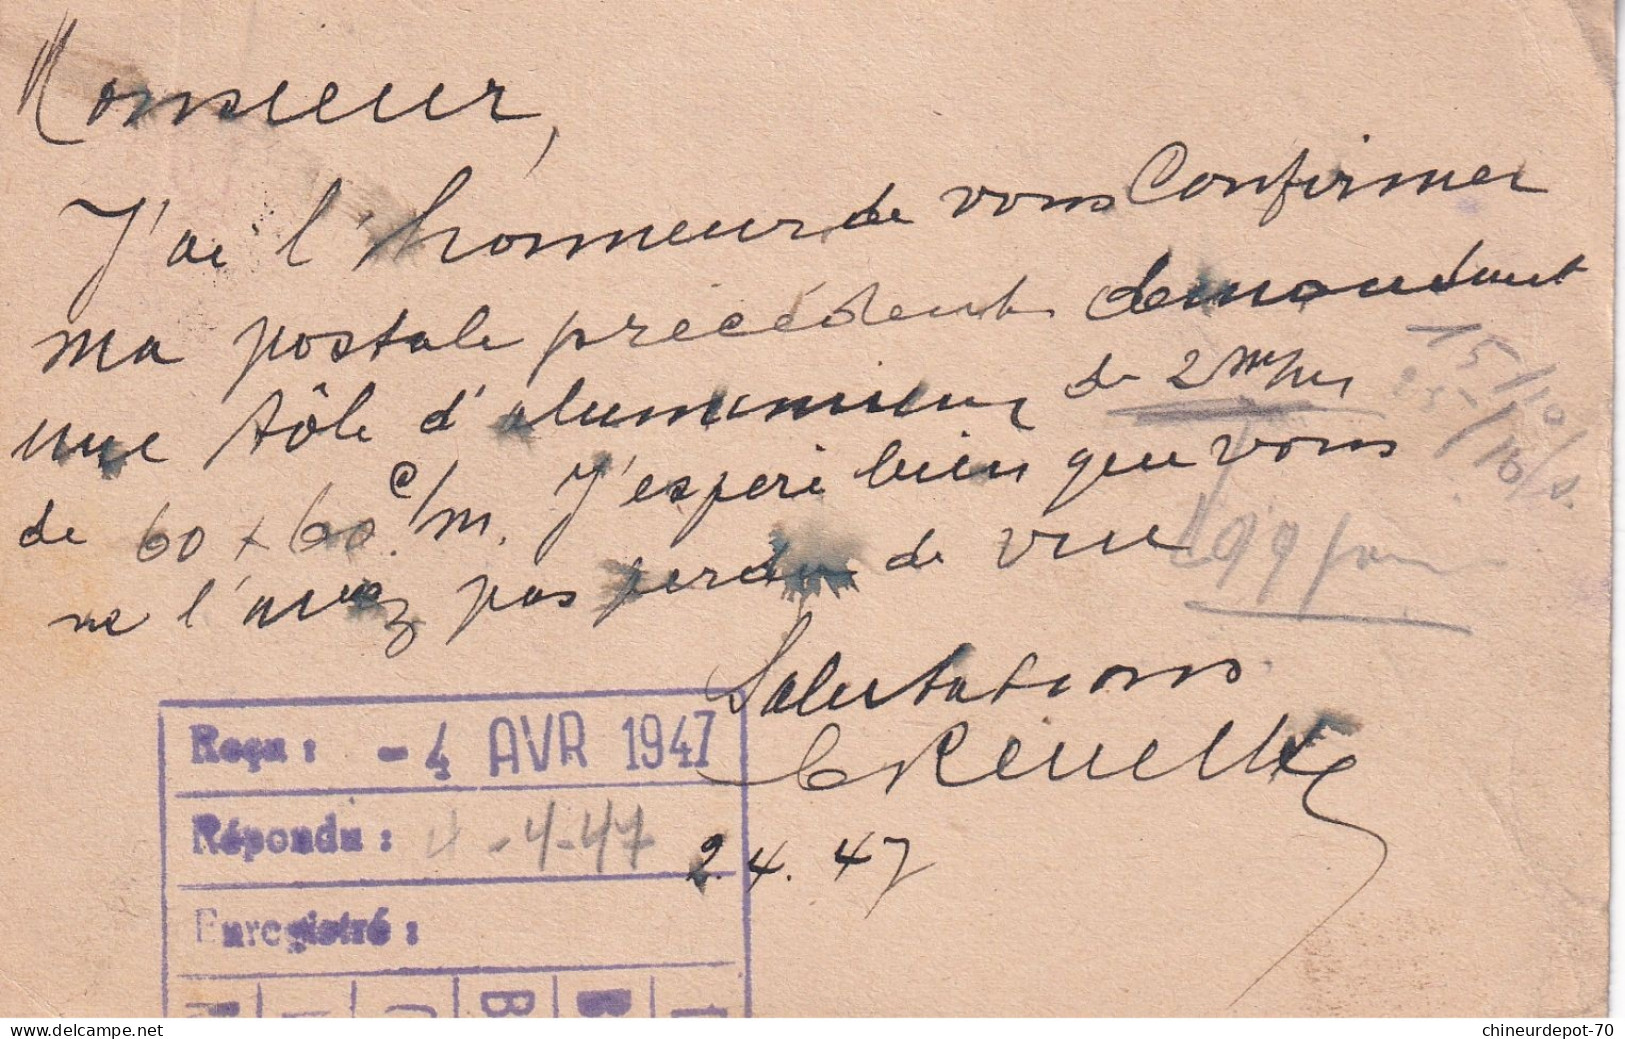 Monsieur,
J'ai l'honneur de vous confirmer
ma postale précédente demandant
une tôle d'aluminium de 2 m/m
de 60 x 60 c/m. J'espere bien que vous
ne l'avez pas perdu de vue
15/10
Salutations
2.4.47
Reçu : - 4 AVR 1947
Répondu : 4-4-47
Enregistré :
delcampe.net
chineurdepot-70